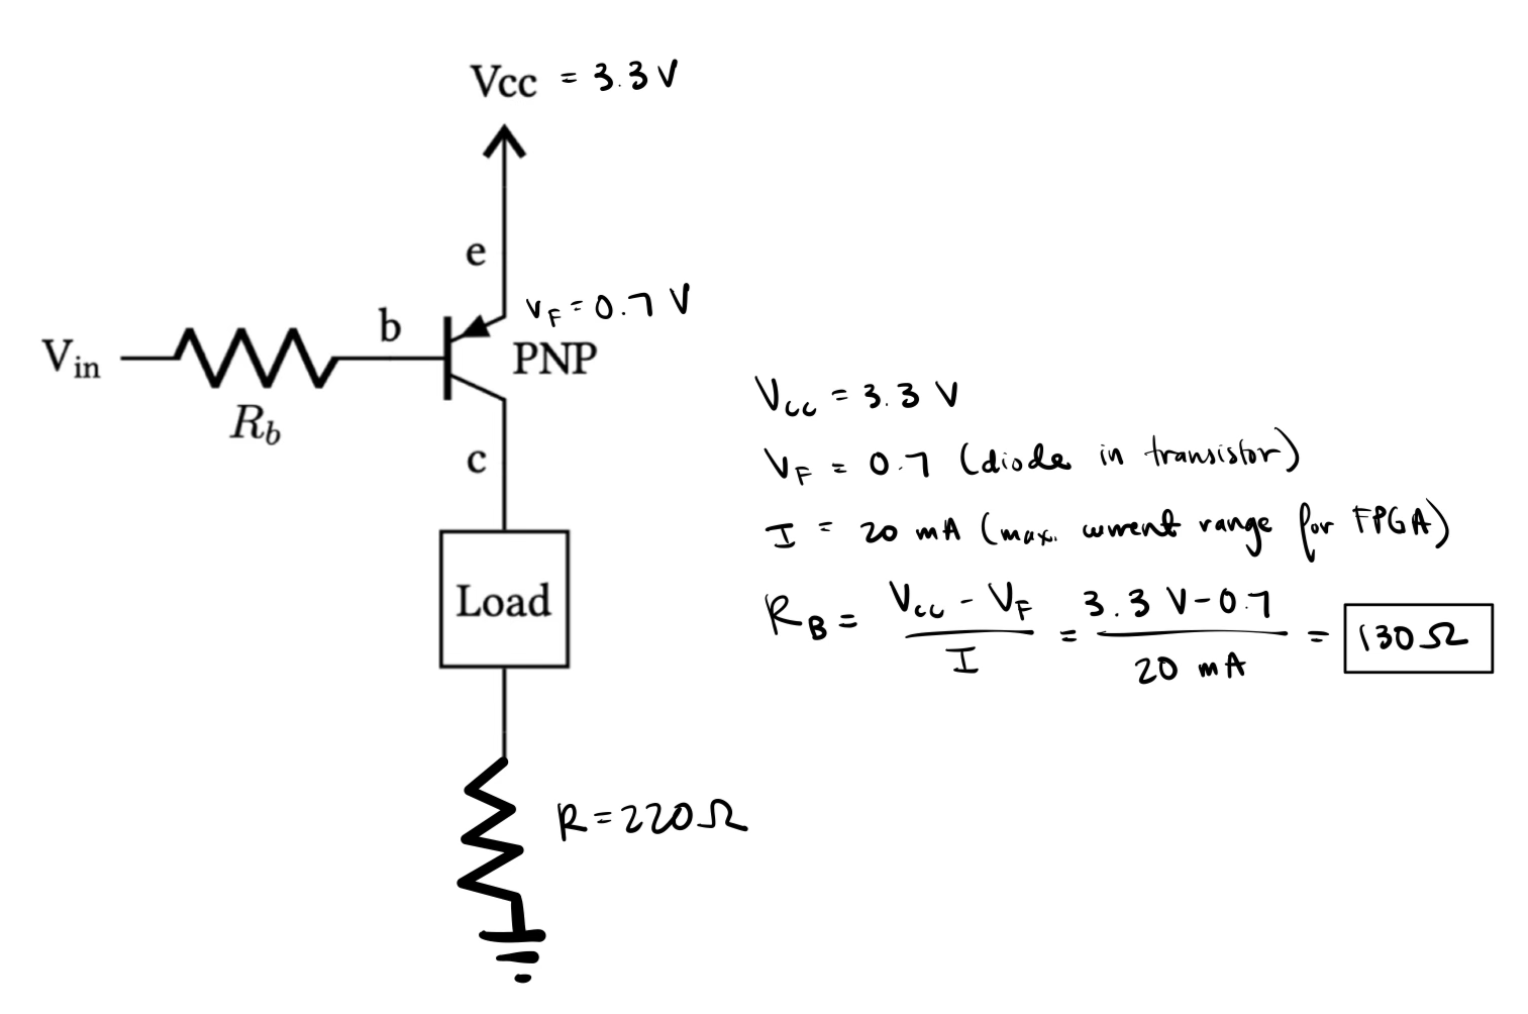 Vcc = 3.3 V
e
V_F = 0.7 V
b
V_in
PNP
R_b
c
V_CC = 3.3 V
V_F = 0.7 (diode in transistor)
I = 20 mA (max. current range for FPGA)
Load
R_B = (V_CC - V_F) / I = (3.3 V - 0.7) / 20 mA = 130 Ω
R = 220 Ω